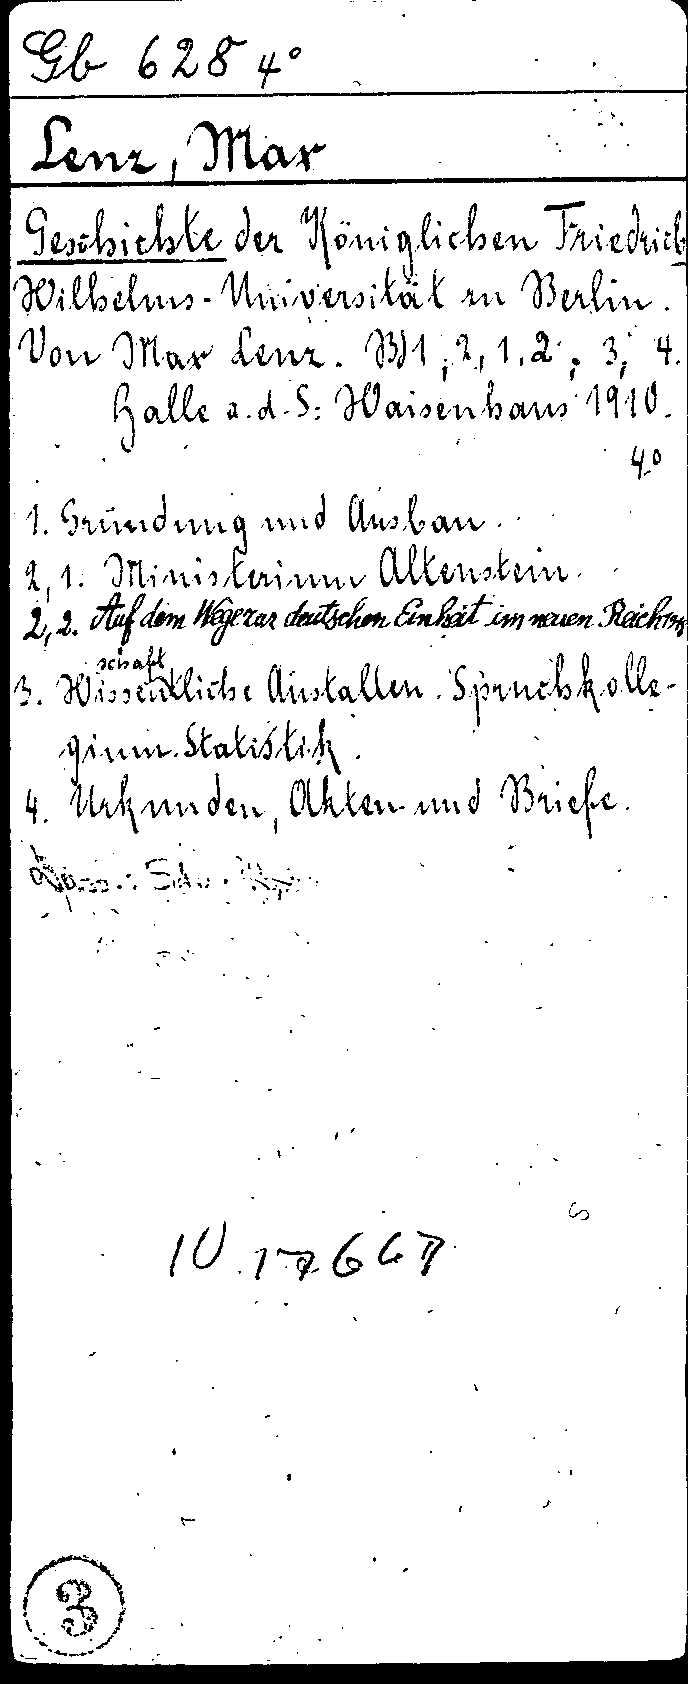 Gb 628 4°
Lenz, Max
Geschichte der Königlichen Friedrich
Wilhelms-Universität zu Berlin.
Von Max Lenz. Bd 1, 2, 1. 2; 3, 4.
Halle a. d. S: Waisenhaus 1910.
4°
1. Gründung und Ausbau.
2, 1. Ministerium Altenstein.
2, 2. Auf dem Wege zur deutschen Einheit im neuen Reich
schaft
3. Wissentliche Anstalten. Spruchkolle-
gium. Statistik.
4. Urkunden, Akten und Briefe.
17667
3